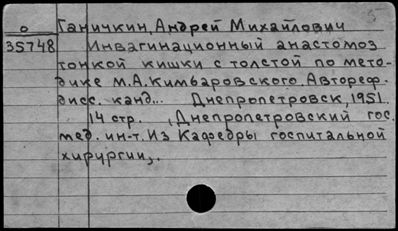 о Ганичкин, Андрей Михайлович
35748 Инвагинационный анастомоз
тонкой кишки с толстой по мето-
дике М.А. Кимбаровского. Автореф.
дисс. канд... Днепропетровск, 1951.
14 стр. (Днепропетровский гос.
мед. ин-т. Из Кафедры госпитальной
хирургии).